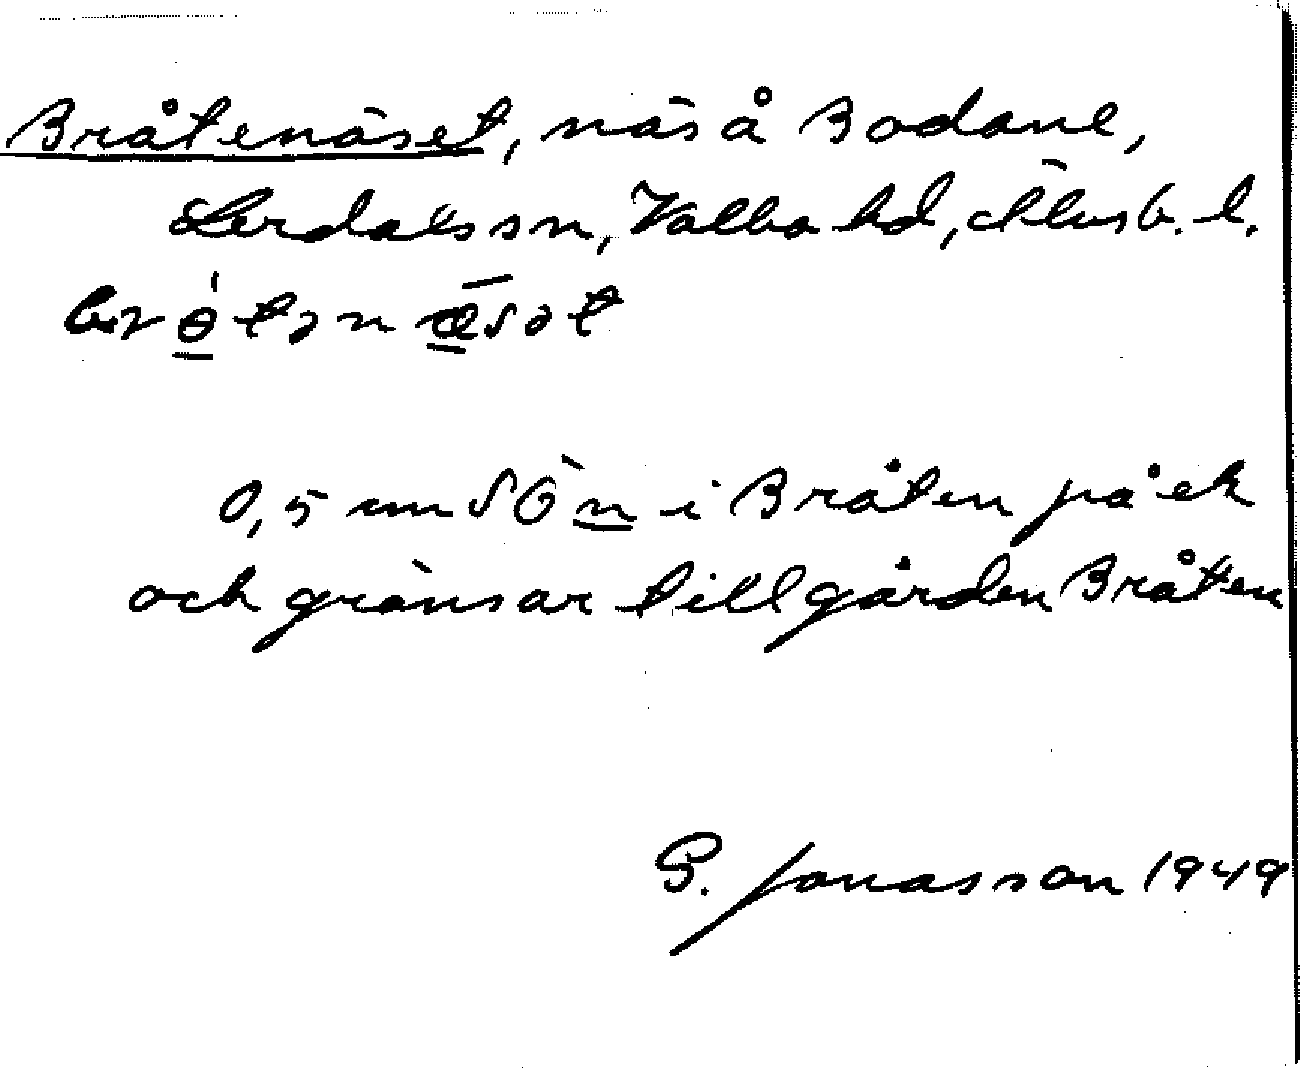 Bråtenäset, näs å Bodane,
Lerdals sn, Valbo hd, Älvsb. l.
0,5 cm SÖ n i Bråten på ek
och gränsar till gården Bråtten
G. Jonasson 1949